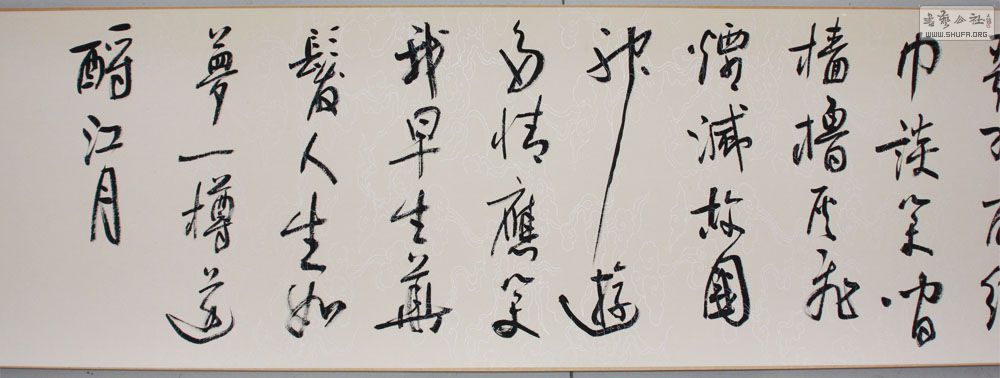 巾談笑間
檣櫓灰飛
煙滅故國
神遊
多情應笑
我早生華
髮人生如
夢一樽還
酹江月
书艺公社
WWW.SHUFA.ORG